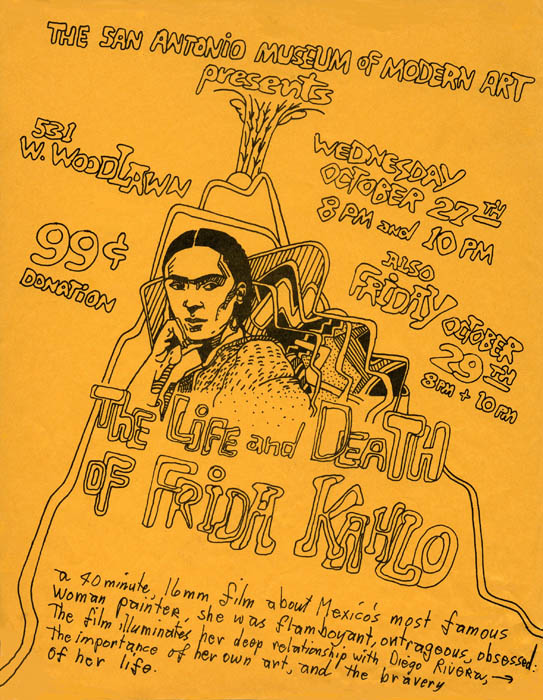 THE SAN ANTONIO MUSEUM of MODERN ART
presents
531
W. WOODLAWN
99¢
DONATION
WEDNESDAY
OCTOBER 27TH
8 PM and 10 PM
ALSO
FRIDAY OCTOBER
29TH
8 PM + 10 PM
THE LIFE and DEATH
OF FRIDA KAHLO
a 40 minute, 16mm film about Mexico's most famous
woman painter, she was flamboyant, outrageous, obsessed:
The film illuminates her deep relationship with Diego Rivera, →
the importance of her own art, and the bravery
of her life.